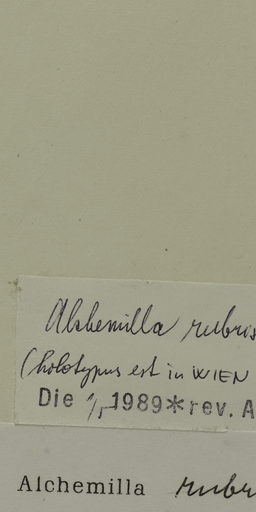 Alchemilla rubris
(holotypus est in WIEN
Die 1989*rev. A
Alchemilla rubr